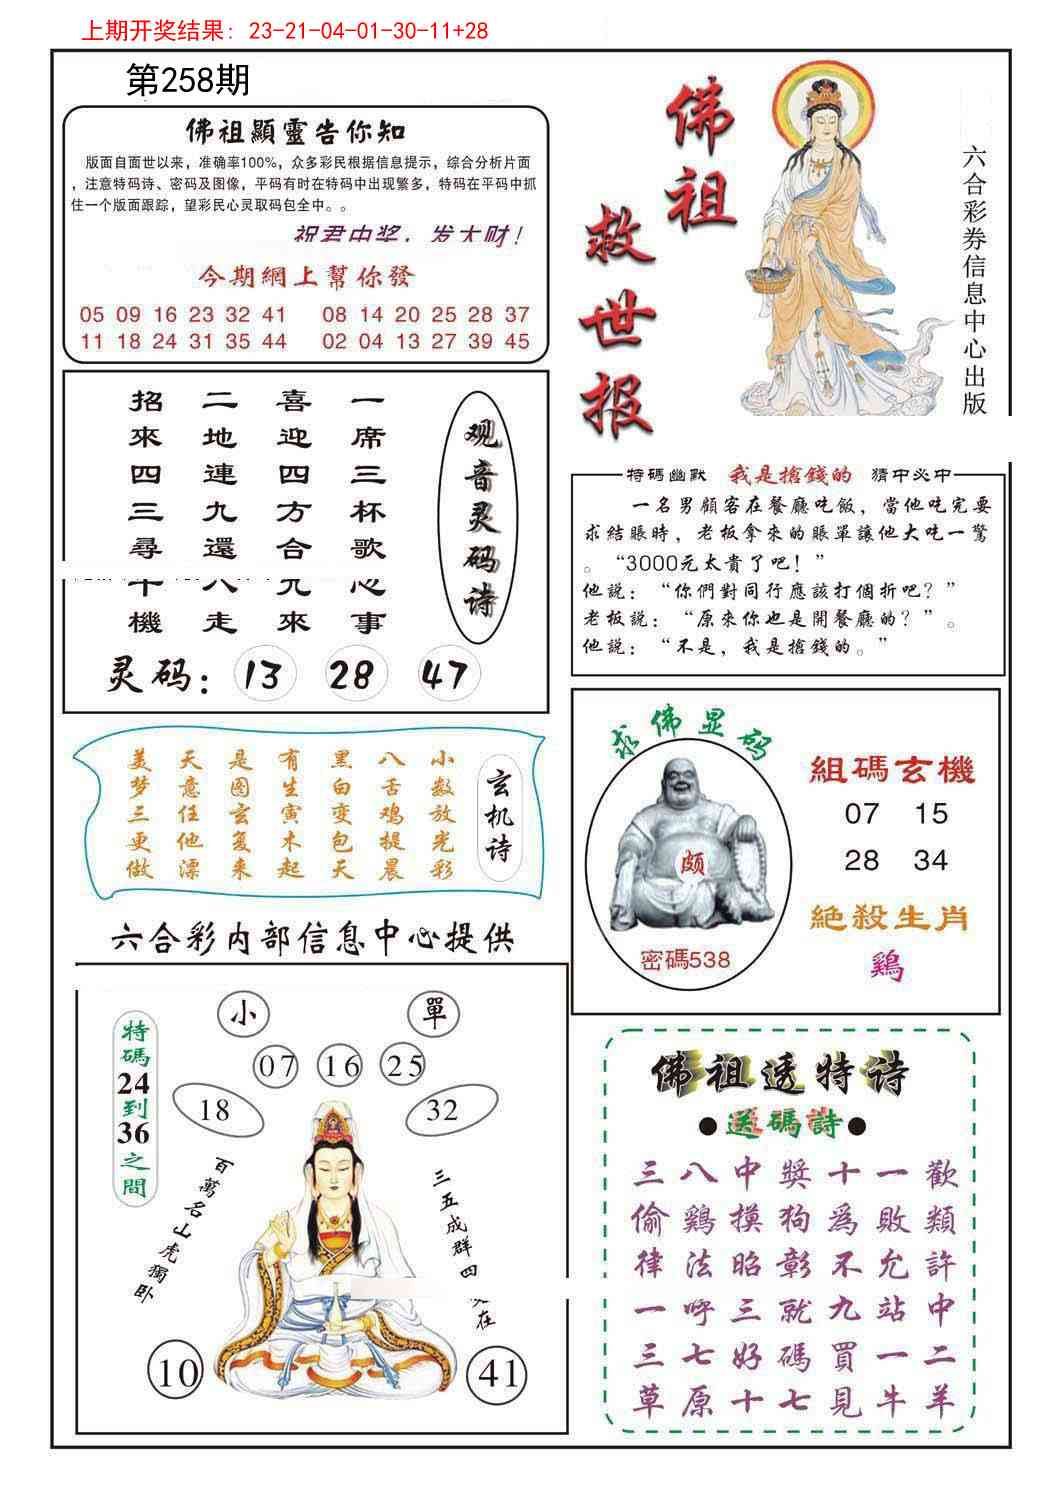 上期开奖结果: 23-21-04-01-30-11+28
第258期
佛祖顯靈告你知
版面自面世以来，准确率100%，众多彩民根据信息提示，综合分析片面
，注意特码诗、密码及图像，平码有时在特码中出现繁多，特码在平码中抓
住一个版面跟踪，望彩民心灵取码包全中。。
祝君中奖，发大财！
今期網上幫你發
05 09 16 23 32 41 08 14 20 25 28 37
11 18 24 31 35 44 02 04 13 27 39 45
佛祖
救世报
六合彩券信息中心出版
观音灵码诗
一席三杯歌心事
喜迎四方合九來
二地連九還八走
招來四三尋十機
灵码：13 28 47
特碼幽默 我是搶錢的 猜中必中
一名男顧客在餐廳吃飯，當他吃完要
求結賬時，老板拿來的賬單讓他大吃一驚
。“3000元太貴了吧！”
他説：“你們對同行應該打個折吧？”
老板説：“原來你也是開餐廳的？”。
他説：“不是，我是搶錢的。”
玄机诗
小数放光彩
八舌鸡提晨
黑白变包天
有生寅木起
是图玄复来
天意任他漂
美梦三更做
求佛显码
颇
密碼538
組碼玄機
07 15
28 34
絕殺生肖
鷄
六合彩内部信息中心提供
特碼24到36之間
小 單
07 16 25
18 32
百萬名山虎獨卧
三五成群四
在
10 41
佛祖透特诗
●送碼詩●
三八中獎十一歡
偷鷄摸狗爲敗類
律法昭彰不允許
一呼三就九站中
三七好碼買一二
草原十七見牛羊